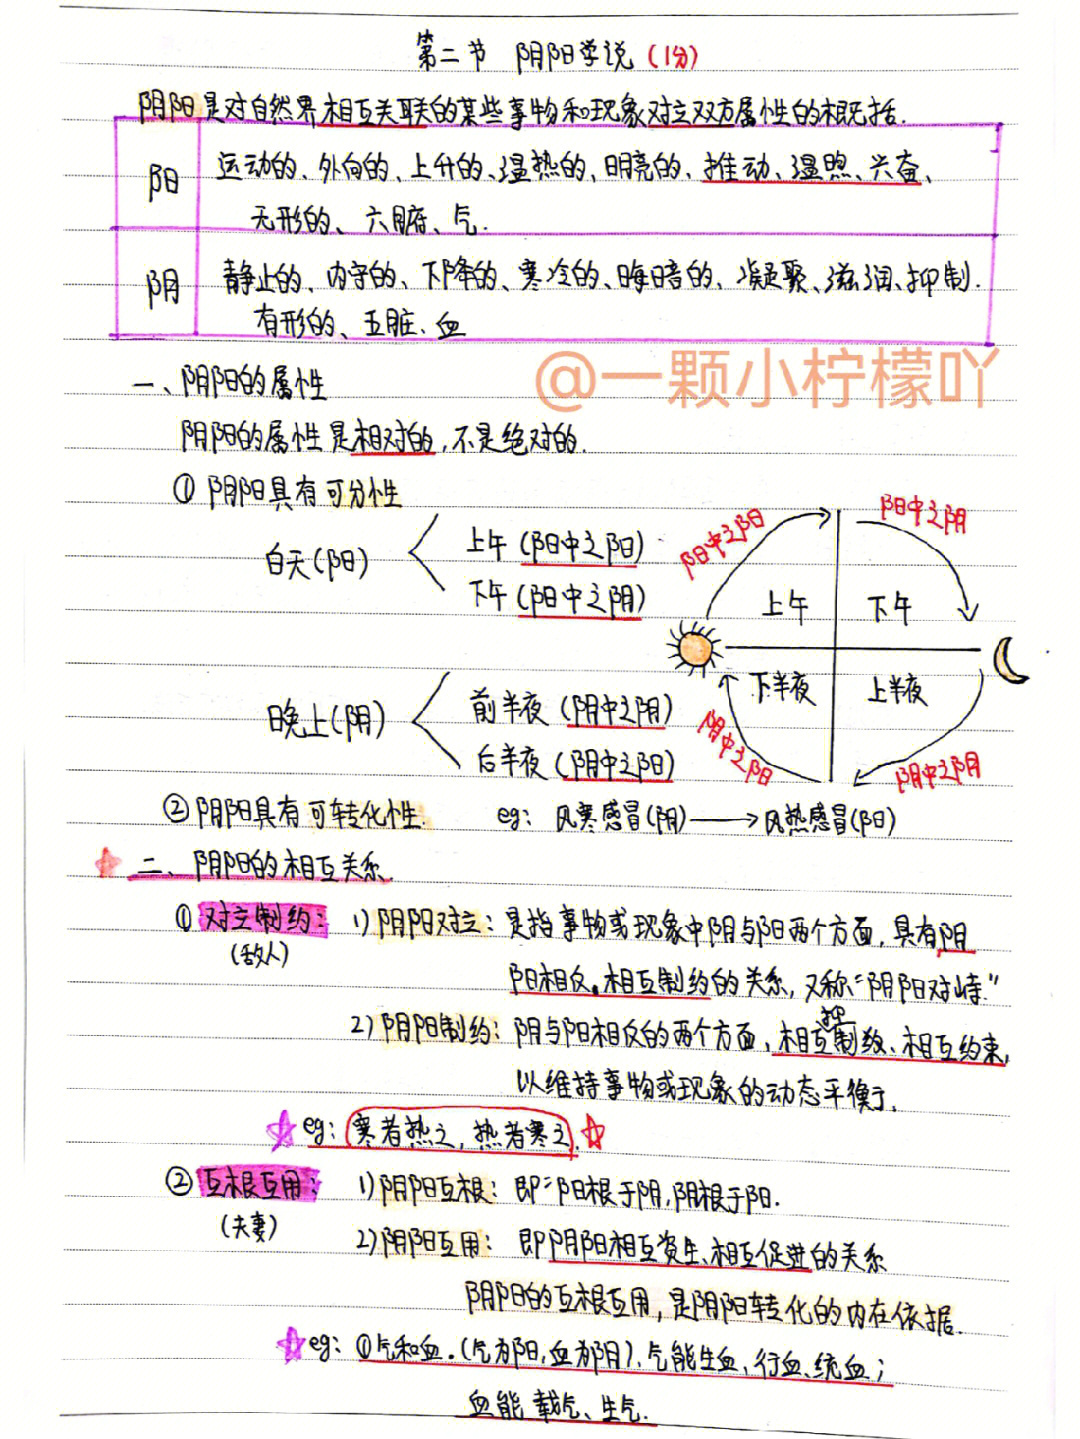 第二节 阴阳学说(1分)
阴阳是对自然界相互关联的某些事物和现象对立双方属性的概括.
阳 运动的、外向的、上升的、温热的、明亮的、推动、温煦、兴奋、
无形的、六腑、气.
阴 静止的、内守的、下降的、寒冷的、晦暗的、凝聚、滋润、抑制.
有形的、五脏、血
@一颗小柠檬吖
一、阴阳的属性
阴阳的属性是相对的,不是绝对的.
① 阴阳具有可分性
白天(阳) 上午(阳中之阳)
下午(阳中之阴)
晚上(阴) 前半夜(阴中之阴)
后半夜(阴中之阳)
阳中之阳 阳中之阴
上午 下午
下半夜 上半夜
阴中之阳 阴中之阴
② 阴阳具有可转化性. eg: 风寒感冒(阴)→风热感冒(阳)
二、阴阳的相互关系.
① 对立制约: 1)阴阳对立: 是指事物或现象中阴与阳两个方面,具有阴
(敌人) 阳相反。相互制约的关系,又称“阴阳对峙.”
2)阴阳制约: 阴与阳相反的两个方面,相互制约、相互约束,
抑
以维持事物或现象的动态平衡.
eg: 寒者热之,热者寒之.
② 互根互用: 1)阴阳互根: 即:阳根于阴,阴根于阳.
(夫妻) 2)阴阳互用: 即阴阳相互资生、相互促进的关系
阴阳的互根互用,是阴阳转化的内在依据.
eg: ①气和血.(气为阳,血为阴),气能生血,行血、统血;
血能载气、生气.